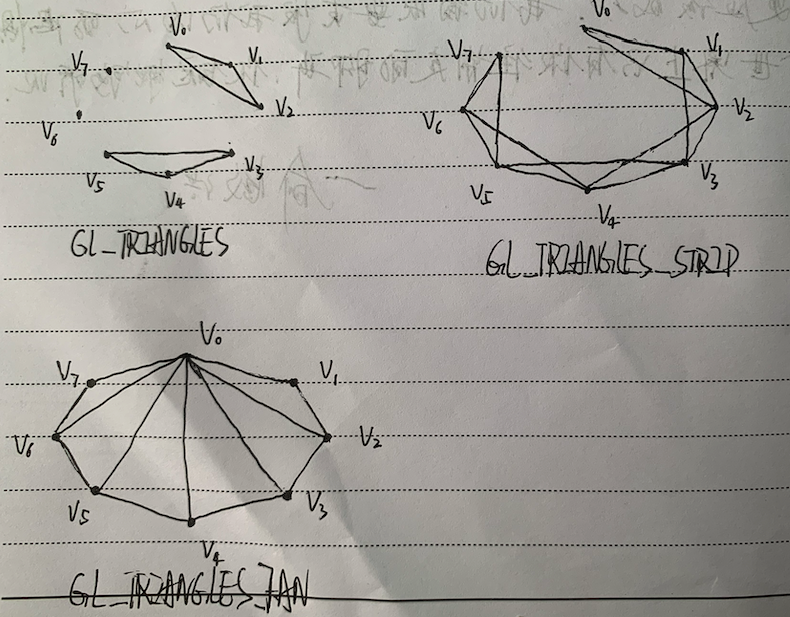 V0
V7
V1
V2
V6
V5
V3
V4
GL_TRIANGLES
V0
V7
V1
V6
V2
V5
V3
V4
GL_TRIANGLES_STRIP
V0
V7
V1
V6
V2
V5
V3
V4
GL_TRIANGLES_FAN